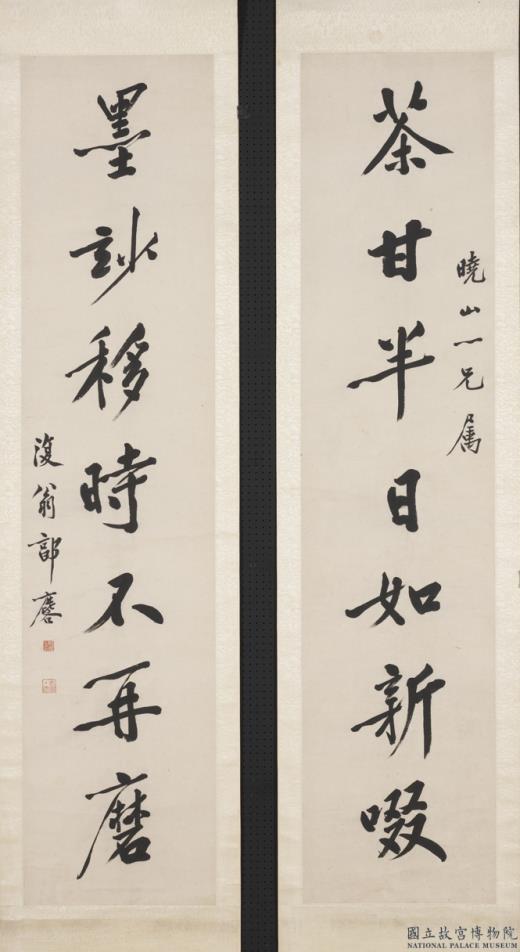 曉山 兄属
茶甘半日如新啜
墨玅移時不再磨
復翁郭麐
國立故宮博物院
NATIONAL PALACE MUSEUM